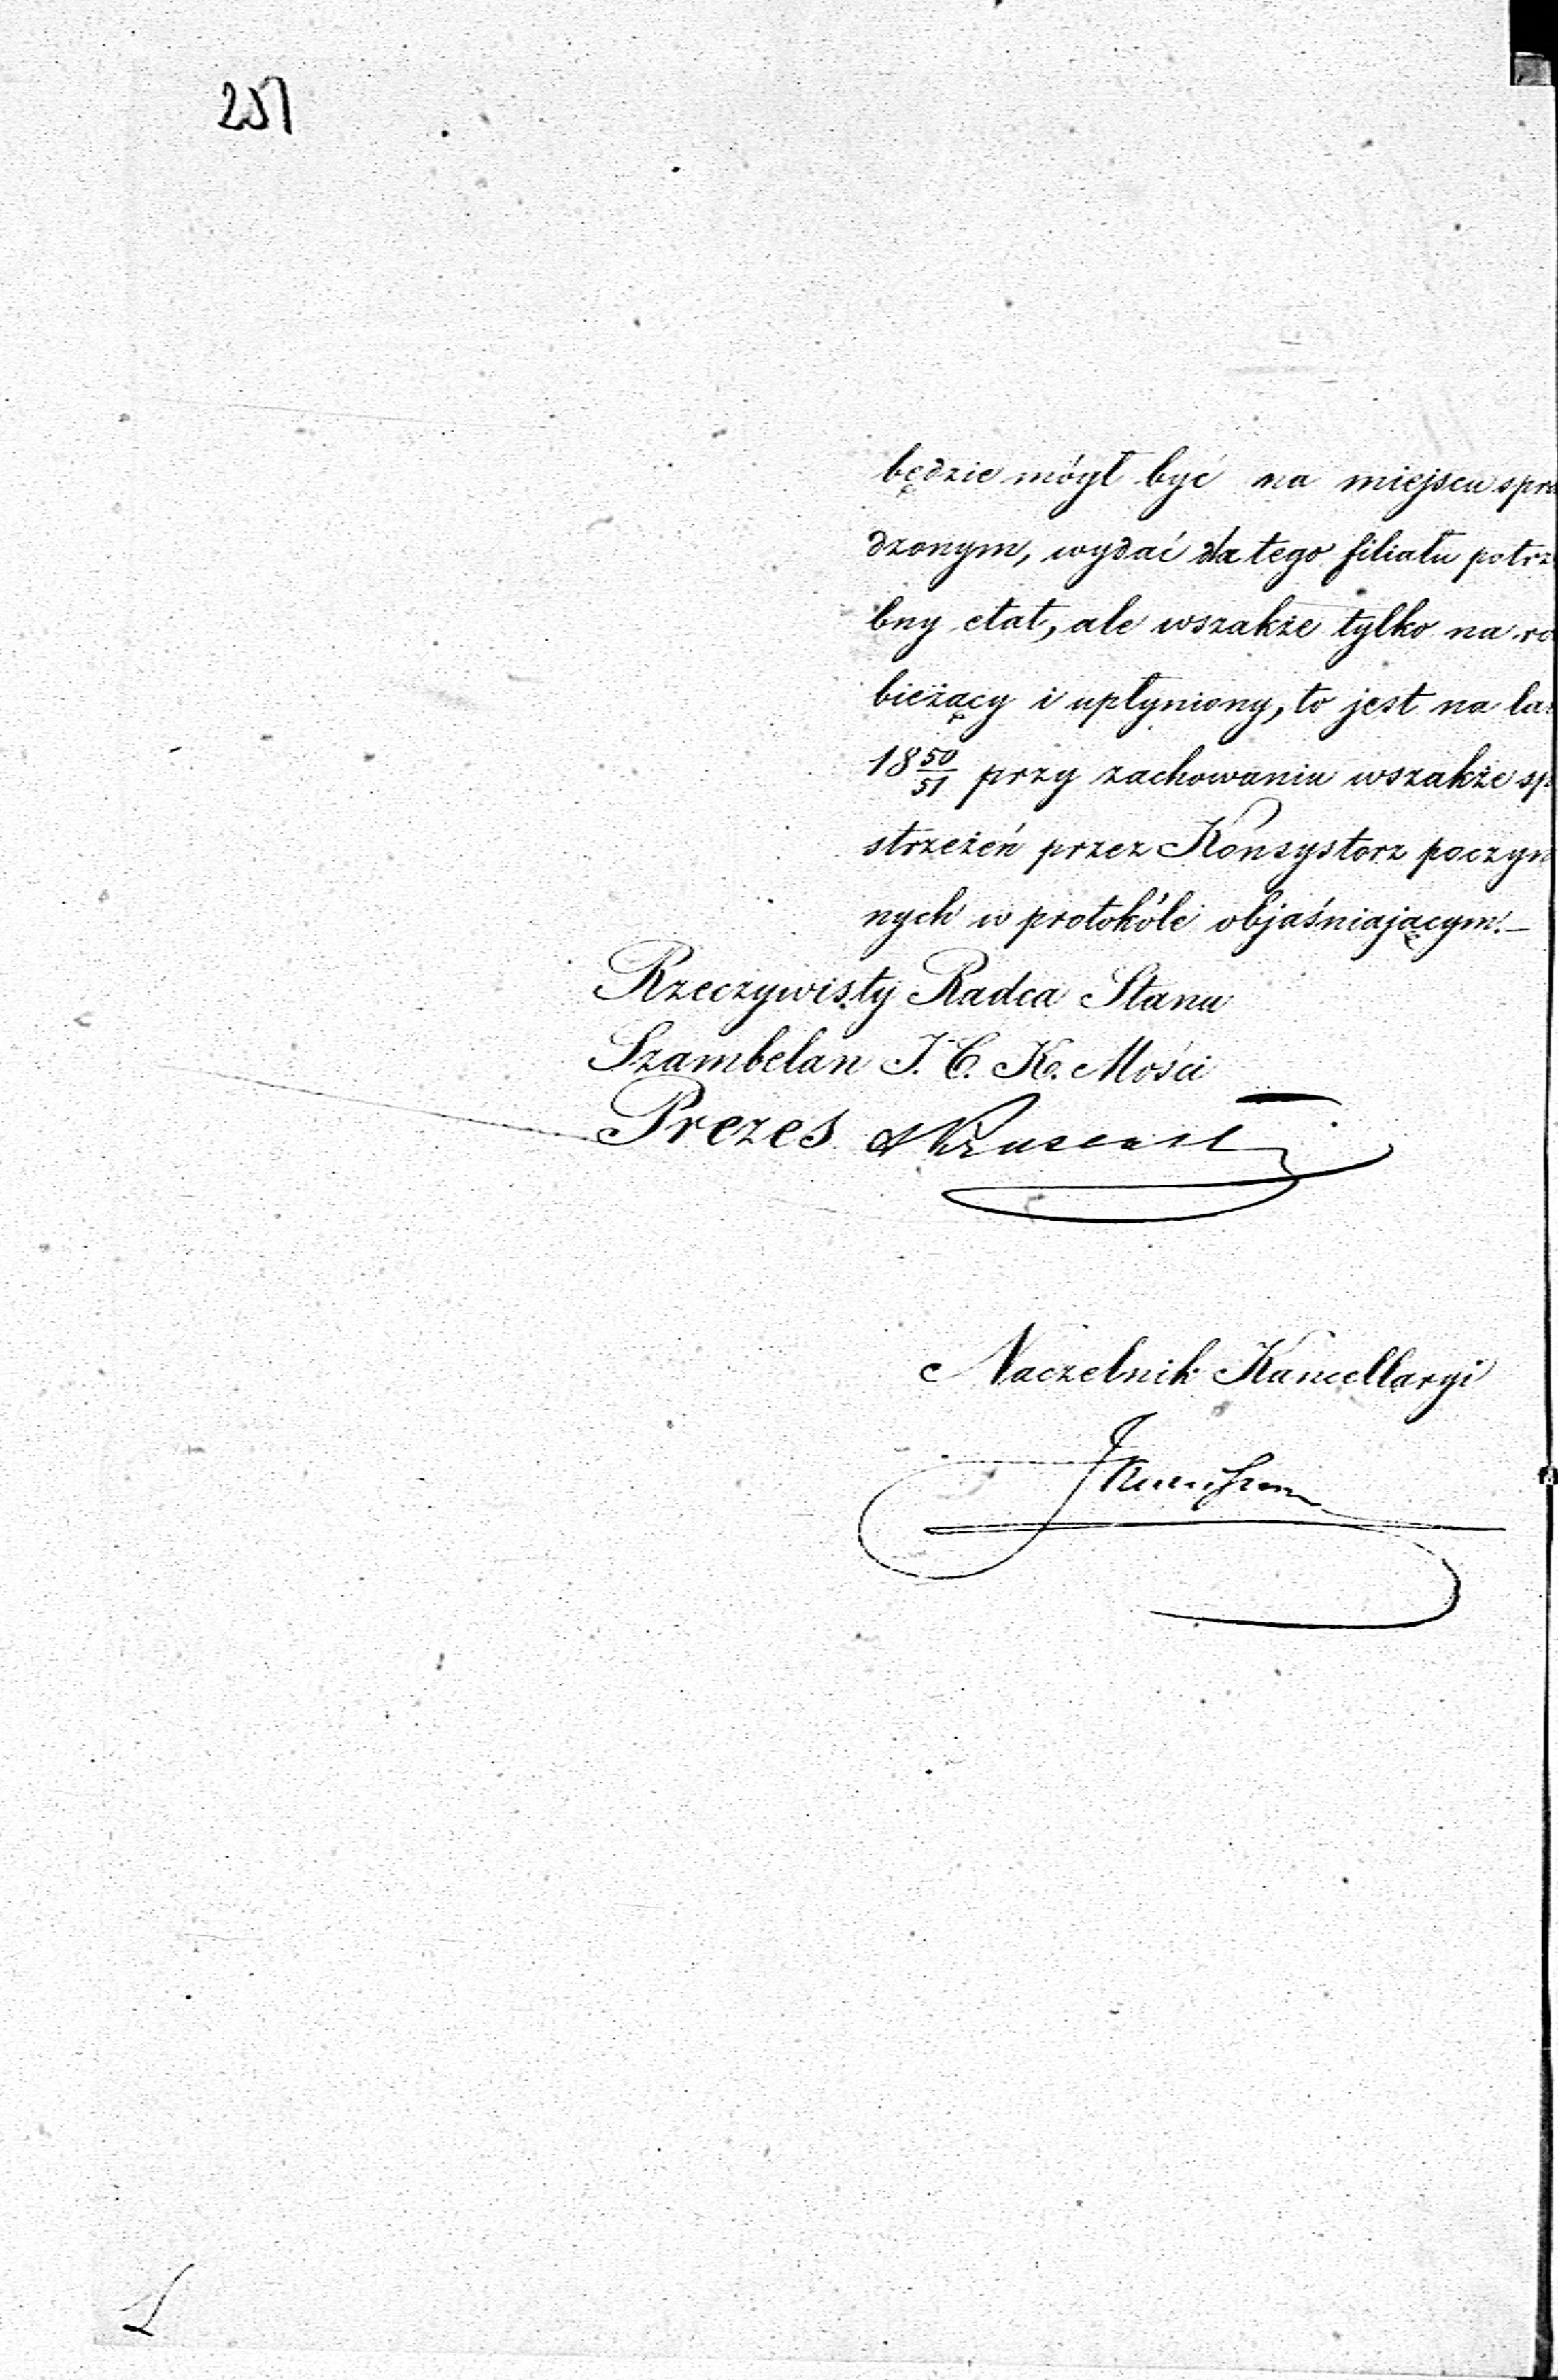 257
będzie mógł być na miejscu spra
dzonym, wydać dla tego filiału potrz
bny etat, ale wszakże tylko na ro
bieżący i upłyniony, to jest na la
18 50/51 przy zachowaniu wszakże sp
strzeżeń przez Konsystorz poczyn
nych w protokóle objaśniającym. –
Rzeczywisty Radca Stanu
Szambelan J. C. K. Mości
Prezes
Naczelnik Kancellaryi